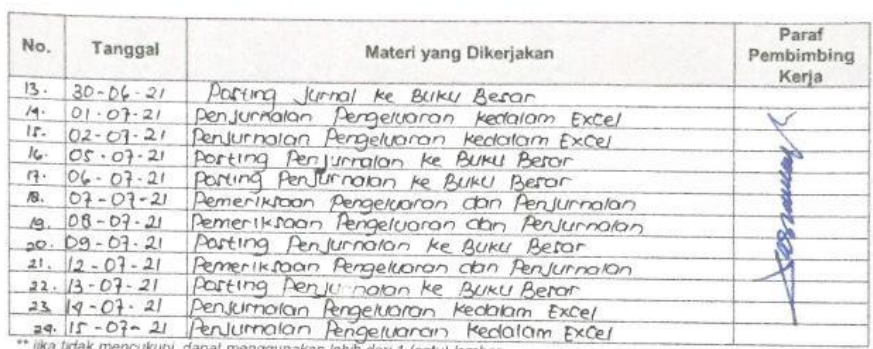 No. Tanggal Materi yang Dikerjakan Paraf Pembimbing Kerja
13. 30-06-21 Posting Jurnal ke Buku Besar
14. 01-07-21 Penjurnalan Pengeluaran kedalam Excel
15. 02-07-21 Penjurnalan Pengeluaran kedalam Excel
16. 05-07-21 Posting Penjurnalan ke Buku Besar
17. 06-07-21 Posting Penjurnalan ke Buku Besar
18. 07-07-21 Pemeriksaan Pengeluaran dan Penjurnalan
19. 08-07-21 Pemeriksaan Pengeluaran dan Penjurnalan
20. 09-07-21 Posting Penjurnalan ke Buku Besar
21. 12-07-21 Pemeriksaan Pengeluaran dan Penjurnalan
22. 13-07-21 Posting Penjurnalan ke Buku Besar
23 14-07-21 Penjurnalan Pengeluaran kedalam Excel
24. 15-07-21 Penjurnalan Pengeluaran kedalam Excel
** jika tidak mencukupi, dapat menggunakan lebih dari 1 (satu) lembar